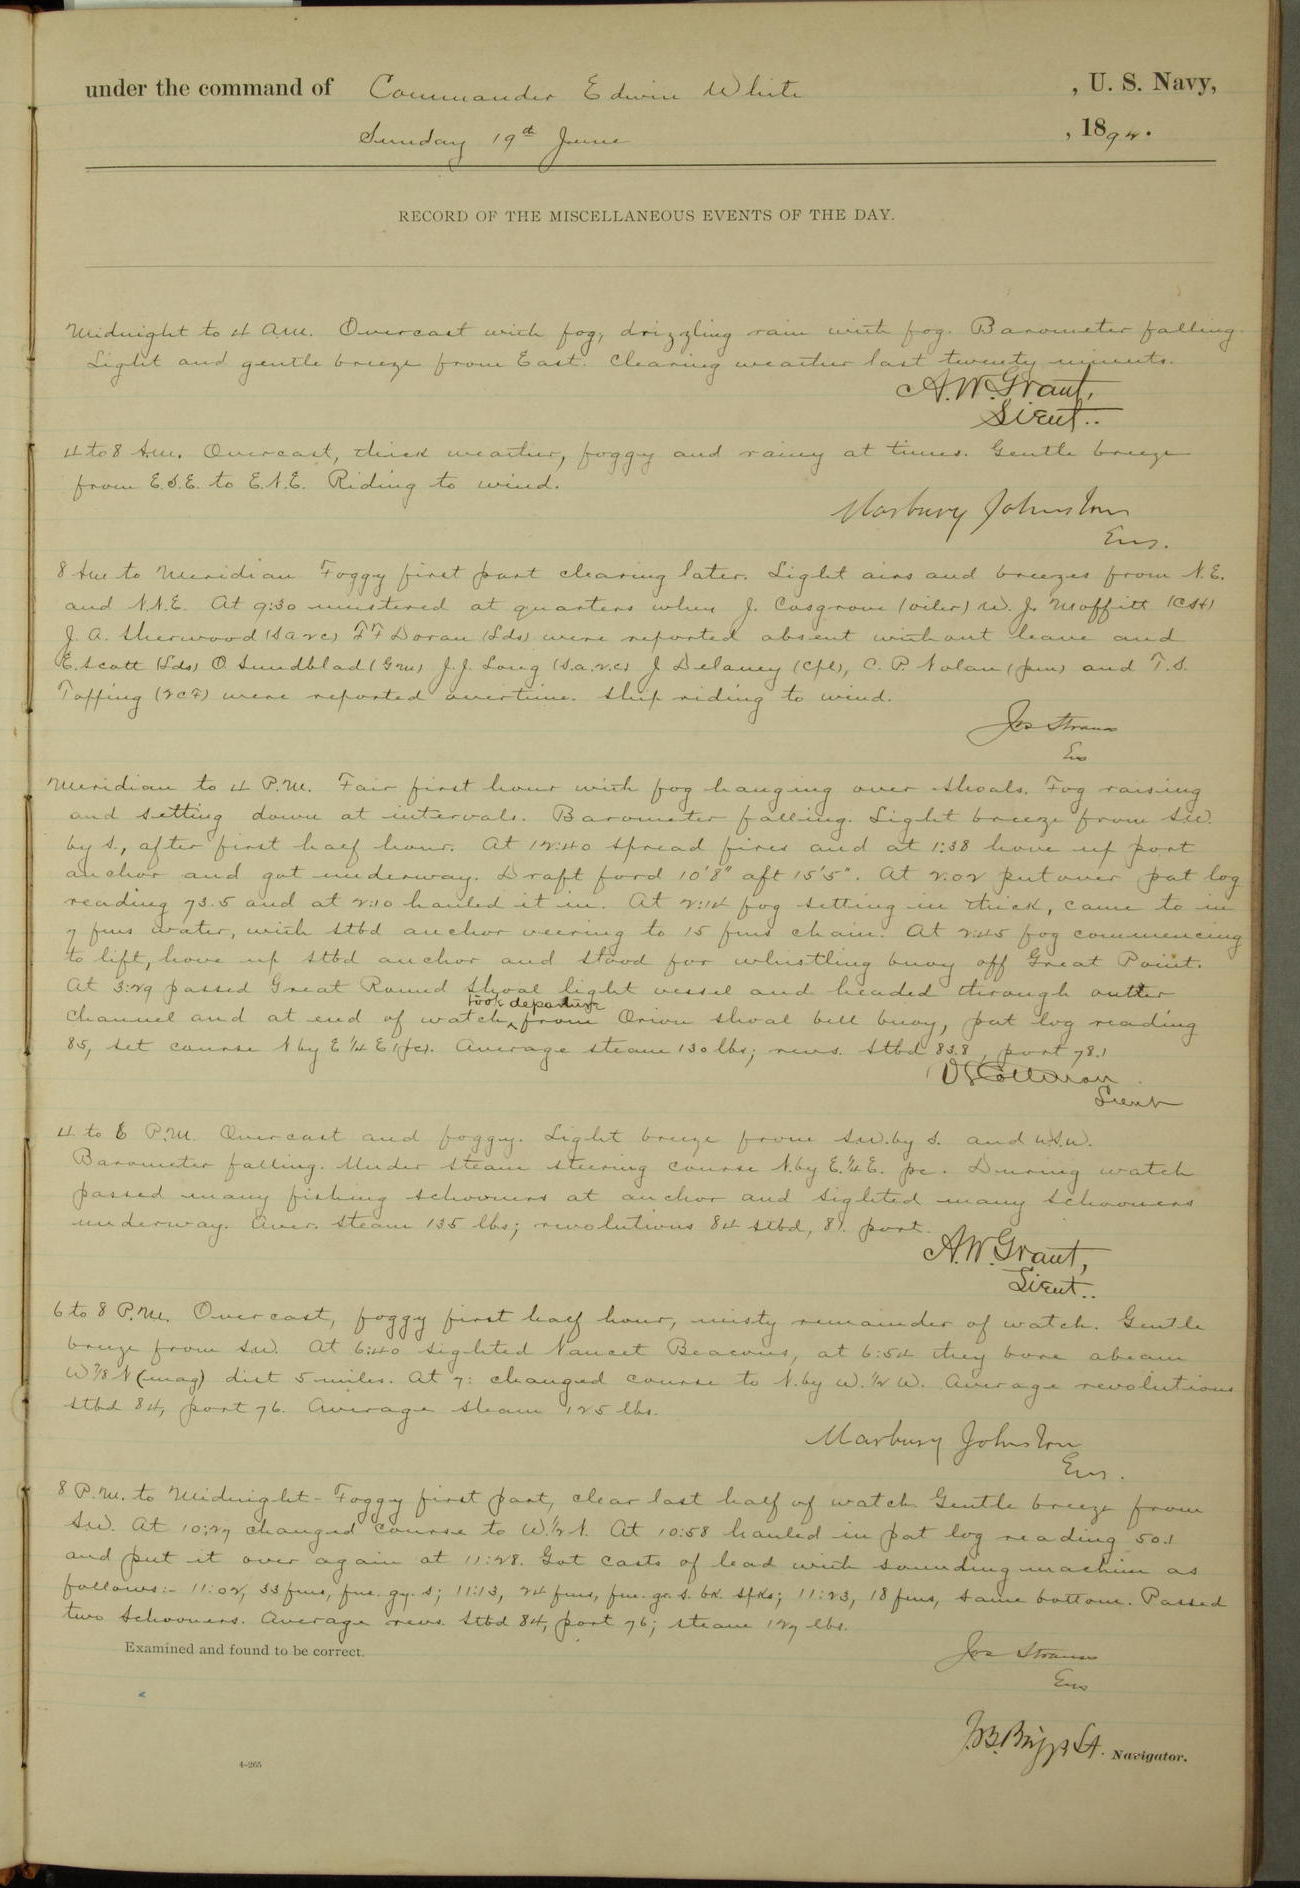 under the command of Commander Edwin White , U. S. Navy,
Sunday 19th June , 1892.
RECORD OF THE MISCELLANEOUS EVENTS OF THE DAY.
Midnight to 4 A.M. Overcast with fog, drizzling rain with fog. Barometer falling.
Light and gentle breeze from East. Clearing weather last twenty minuts.
A.W. Grant,
Lieut..
4 to 8 A.M. Overcast, thick weather, foggy and rainy at times. Gentle breeze
from E.S.E. to E.N.E. Riding to wind.
Marbury Johnston
Ens.
8 AM to Meridian Foggy first part clearing later. Light airs and breezes from N.E.
and N.N.E. At 9:30 mustered at quarters when J. Cosgrove (oiler) W. J. Moffitt (CSH)
J. A. Sherwood (Sa2c) F F Doran (Lds) were reported absent without leave and
E. Scott (Lds) O Sundblad (Gm) J. J. Long (S.a.2.c) J Delaney (Cpl), C. P. Nolan (pm) and T. S.
Topping (2CF) were reported overtime. Ship riding to wind.
Jos Strauss
Ens
Meridian to 4 P.M. Fair first hour with fog hanging over shoals. Fog raising
and setting down at intervals. Barometer falling. Light breeze from SW.
by S., after first half hour. At 12:40 spread fires and at 1:38 hove up port
anchor and got underway. Draft ford 10'8" aft 15'5". At 2:02 put over pat log
reading 73.5 and at 2:10 hauled it in. At 2:14 fog setting in thick, came to in
7 fms water, with stbd anchor veering to 15 fms chain. At 2:45 fog commencing
to lift, hove up stbd anchor and stood for whistling buoy off Great Point.
At 3:29 passed Great Round Shoal light vessel and headed through outter
channel and at end of watch, took departure from Orion shoal bell buoy, pat log reading
85, set course N by E ¼ E (pc). Average steam 130 lbs; revs. stbd 83.8, port 78.1
Lieut
4 to 6 P.M. Overcast and foggy. Light breeze from SW. by S. and W.S.W.
Barometer falling. Under steam steering course N. by E. ¼ E. pc. During watch
passed many fishing schooners at anchor and sighted many schooners
underway. Aver. steam 135 lbs; revolutions 84 stbd, 81. port.
A.W. Grant,
Lieut..
6 to 8 P.M. Overcast, foggy first half hour, misty remainder of watch. Gentle
breeze from SW. At 6:40 sighted Nauset Beacons, at 6:54 they bore abeam
W ⅞ N (mag) dist 5 miles. At 7: changed course to N. by W. ½ W. Average revolutions
stbd 84, port 76. Average steam 125 lbs.
Marbury Johnston
Ens.
8 P.M. to Midnight - Foggy first part, clear last half of watch Gentle breeze from
SW. At 10:27 changed course to W. ½ N. At 10:58 hauled in pat log reading 50.1
and put it over again at 11:28. Got casts of lead with sounding machine as
follows:- 11:02, 33 fms, fne. gy. s; 11:13, 24 fms, fne. gr. s. bk. spks; 11:23, 18 fms, same bottom. Passed
two schooners. Average revs. stbd 84, port 76; steam 127 lbs.
Examined and found to be correct.
Jos Strauss
Ens
J.B. Briggs Lt. Navigator.
4-265